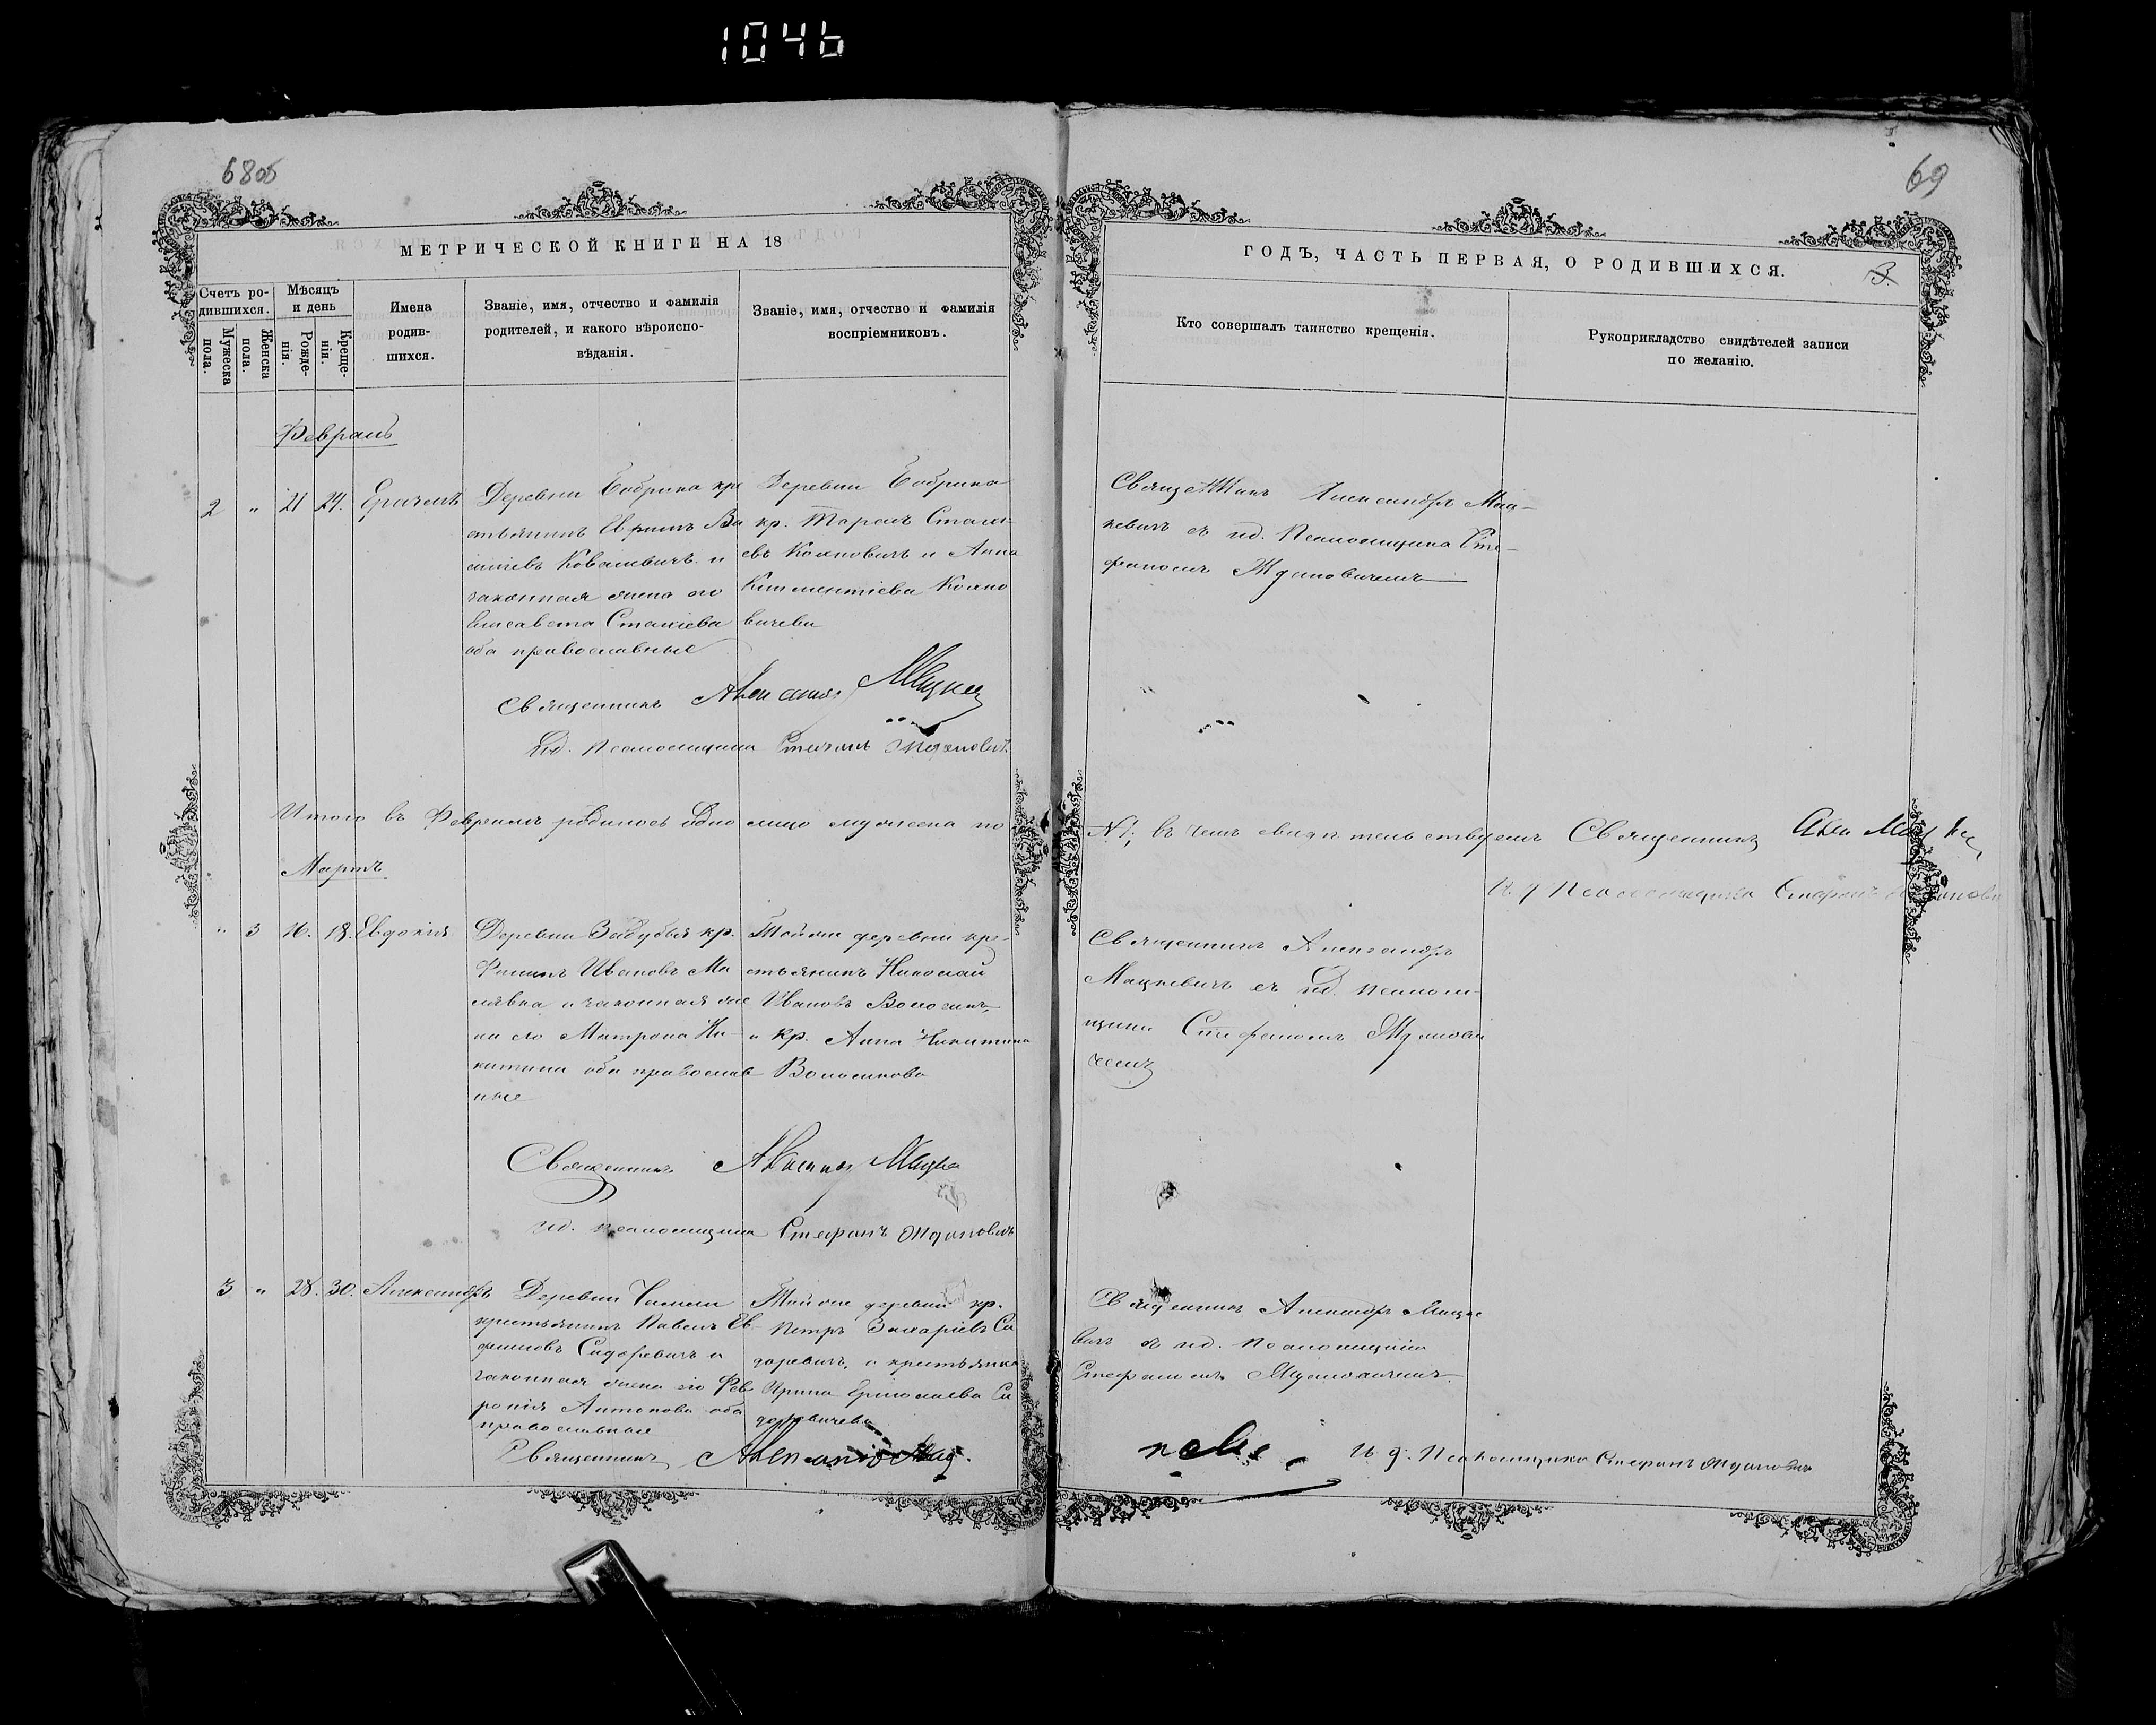 1046
68об
69
МЕТРИЧЕСКОЙ КНИГИ НА 18
ГОДЪ, ЧАСТЬ ПЕРВАЯ, О РОДИВШИХСЯ.
3.
Счетъ ро-
дившихся.
Мужеска
пола.
Женска
пола.
Мѣсяцъ
и день
Рожде-
нія.
Креще-
нія.
Имена
родив-
шихся.
Званіе, имя, отчество и фамилія
родителей, и какого вѣроиспо-
вѣданія.
Званіе, имя, отчество и фамилія
воспріемниковъ.
Кто совершалъ таинство крещенія.
Рукоприкладство свидѣтелей записи
по желанію.
Февраль
2 " 21 24.
Деревни Бобрика кре
стьянинъ
Ковалевичъ и
законная жена его
Елисавета Стахіева
оба православные
Деревни Бобрика
кр. Тарасъ Стахі-
евъ Кохновичъ и Анна
Климентіева Кохно
вичева
Священникъ Александръ Мац-
кевичъ съ ид. Псаломщика Сте-
фаномъ Ждановичемъ
Священникъ
Ид. Псаломщика Стефанъ Ждановичъ
Итого въ Февралѣ родилось одно лицо мужеска по
№ 1; въ чемъ свидѣтельствуемъ Священникъ
И. д Псаломщика Стефанъ Жданови
Мартъ
" 3 16. 18. Евдокія
Деревни Забубья кр.
Филипъ Ивановъ Ма
лявка и законная же
на его Матрона Ни-
китина оба православ
ные
Той же деревни кре-
стьянинъ Николай
Ивановъ
и кр. Анна Никитина
Священникъ Александръ
Мацкевичъ съ ид. псалом-
щика Стефаномъ Жданови
чемъ
Священникъ
ид. псаломщика Стефанъ Ждановичъ
3 " 28. 30. Александръ
Деревни
крестьянинъ Павелъ Ев-
фимовъ Сидоревичъ и
законная жена его Фев
ронія Антонова оба
православные
Той же деревни кр.
Петръ Захаріевъ Си
доревичъ, и крестьянка
Ирина Ермолаева Си
доревичева
Священникъ Александръ Мацке
вичъ съ ид. псаломщика
Стефаномъ Ждановичемъ.
Священникъ
И д. Псаломщика Стефанъ Ждановичъ